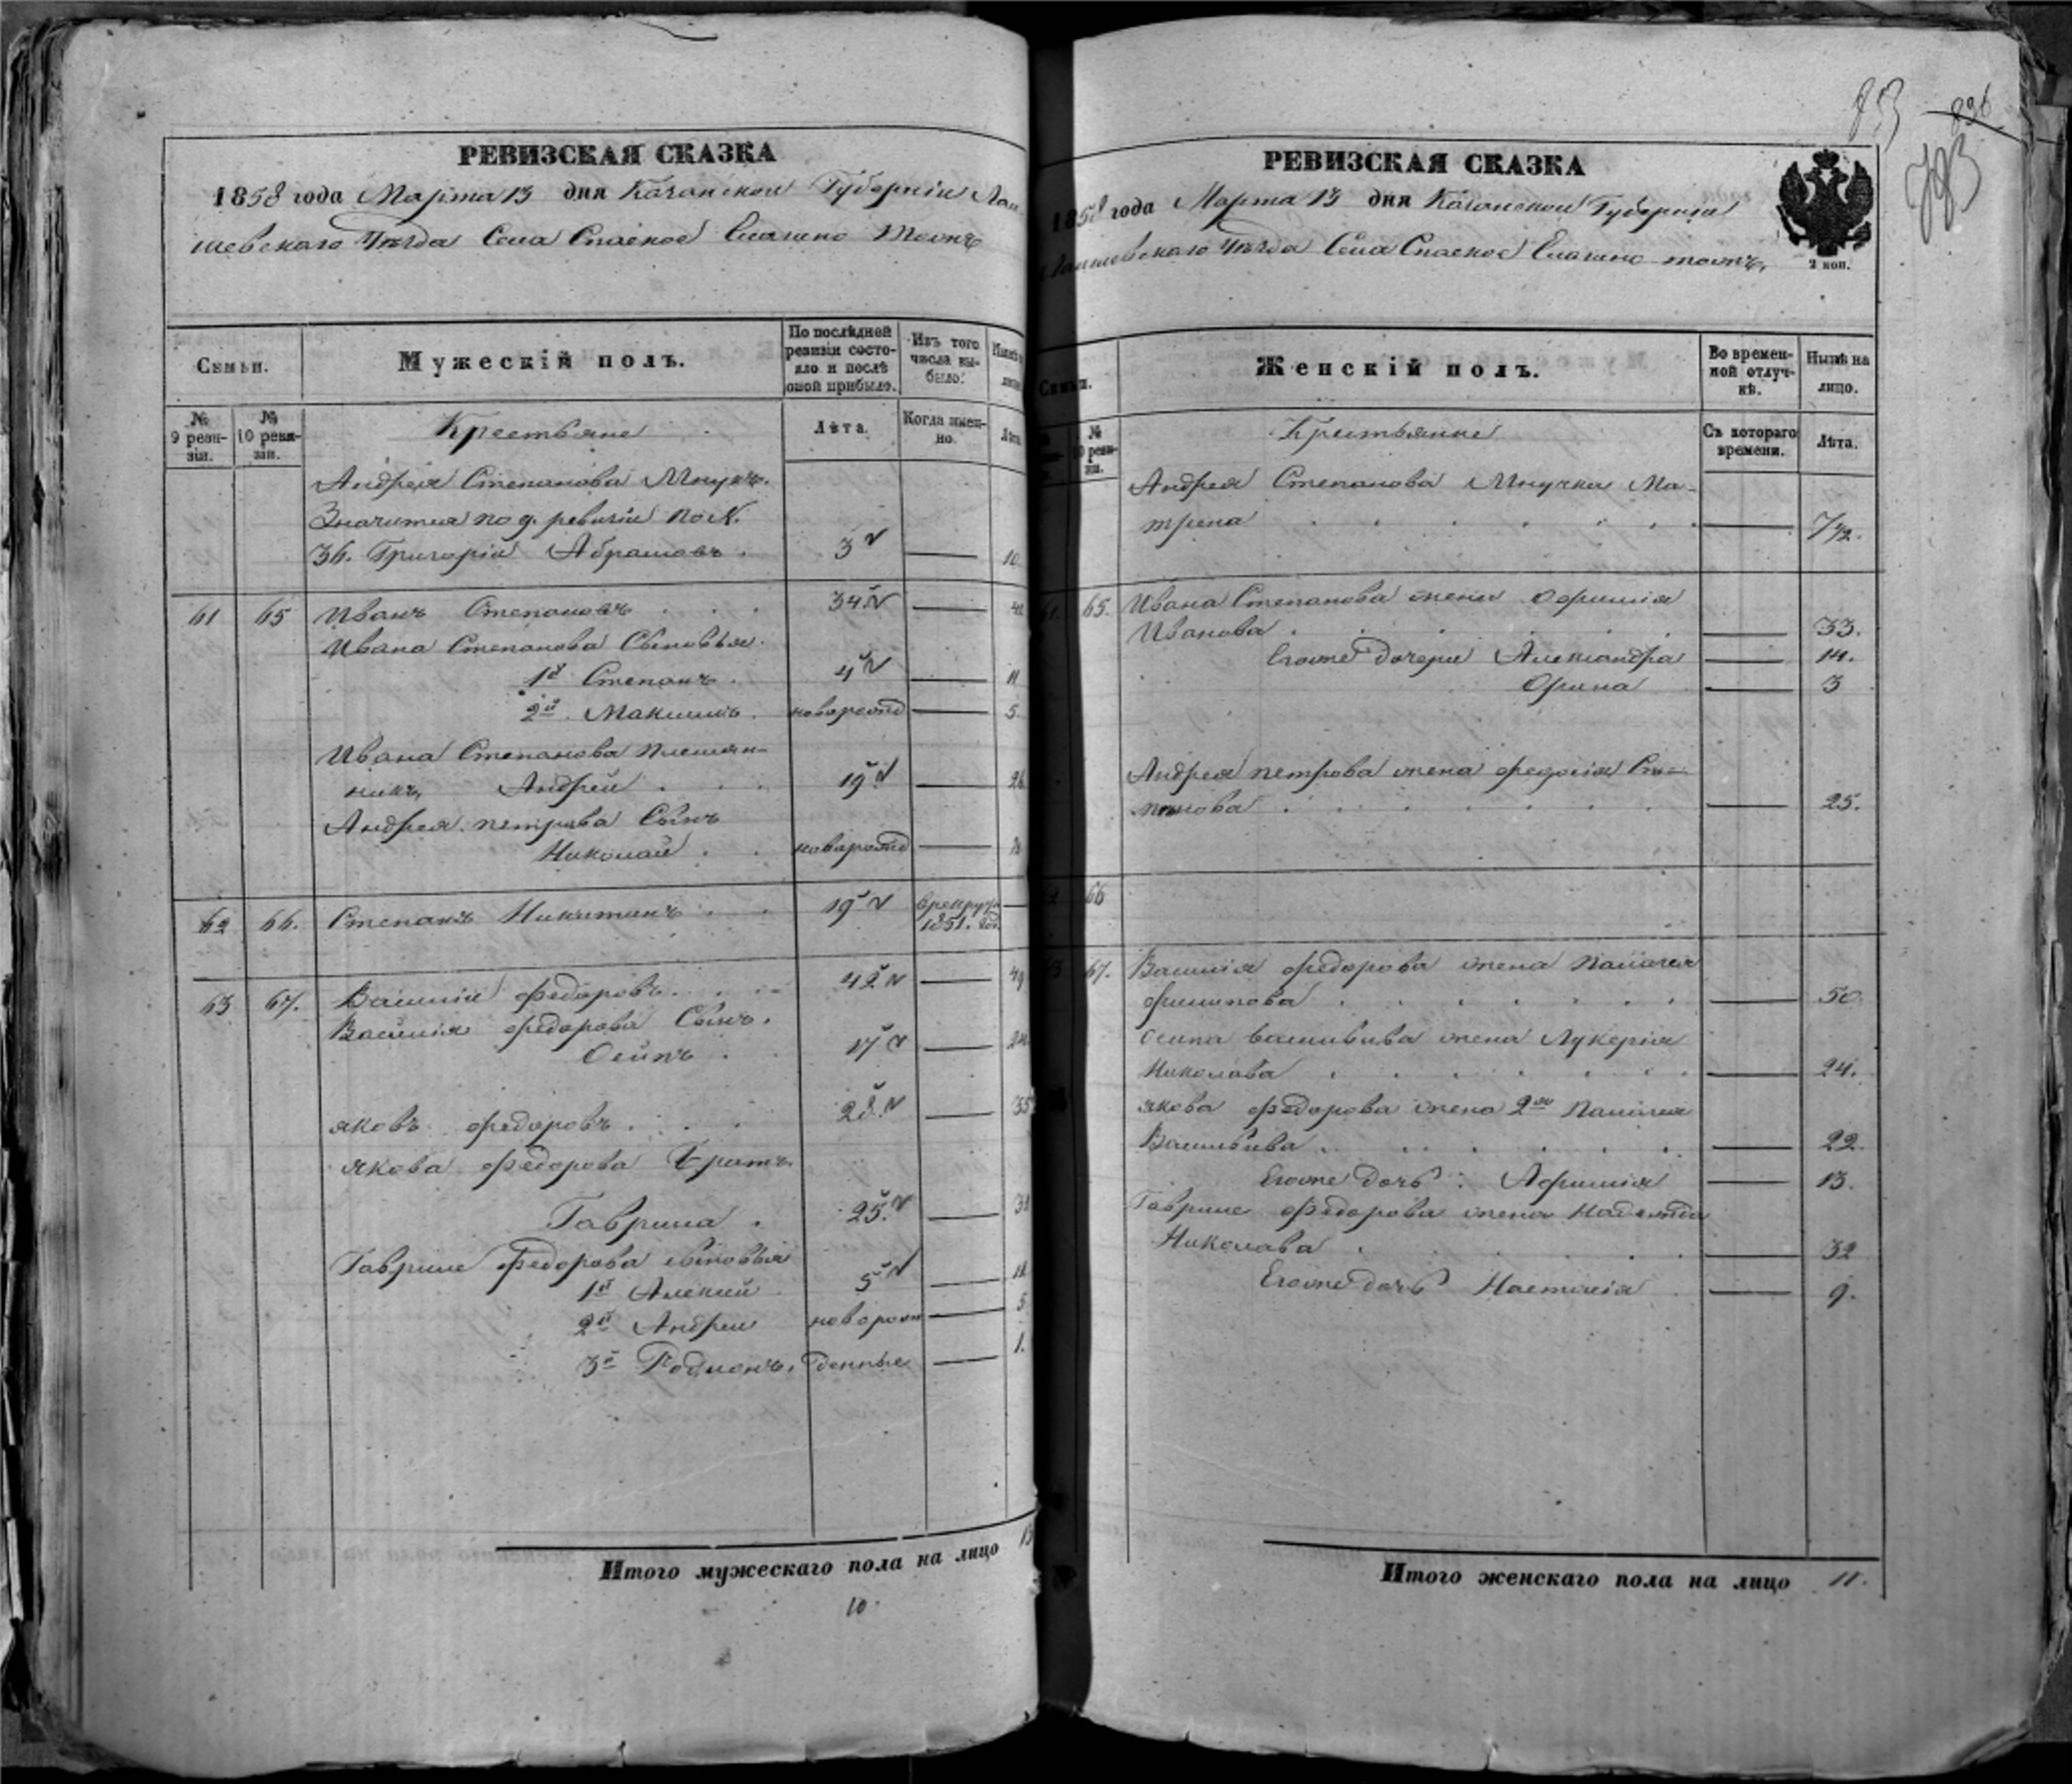 РЕВИЗСКАЯ СКАЗКА
1858 года Марта 13 дня Казанской Губерніи Лаи
шевскаго Уѣзда Села Спаское
Семьи.
Мужескій полъ.
По послѣдней ревизіи состояло и послѣ оной прибыло.
Изъ того числа выбыло.
№ 9 ревизіи.
№ 10 ревизіи.
Крестьяне
Лѣта.
Когда именно.
Лѣта
Андрея Степанова Внукъ.
Значится по 9. ревизіи по №.
36. Григорій Абрамовъ. 3 10
61 65 Иванъ Степановъ 34
Ивана Степанова Сыновья
1й Степанъ 4 11
2й Максимъ новорожд 5.
Ивана Степанова племян-
никъ, Андрей 19 26
Андрея Петрова Сынъ
Николай новорожд
62 66. Степанъ Никитинъ 19 в рекруты
1851. год
63 67. Василій Федоровъ 42 49
Василія Федорова Сынъ.
Осипъ 17 24
Яковъ Федоровъ 28 35
Якова Федорова Братъ
Гаврила 25
Гаврилы Федорова сыновья
1й Алексей 5
2й Андрей новорож 5
3й Родионъ. денные 1.
Итого мужескаго пола на лицо 13
10.
РЕВИЗСКАЯ СКАЗКА
1858 года Марта 13 дня Казанской Губерніи
Лаишевскаго Уѣзда Села Спаское
2 коп.
853
836
793
Семьи.
Женскій полъ.
Во временной отлучкѣ.
Нынѣ на лицо.
№ 10 ревизіи.
Крестьянки
Съ котораго времени.
Лѣта.
Андрея Степанова Внучка Ма-
трена 7 1/2.
61. 65. Ивана Степанова жена Офимія
Иванова 33.
Eгоже дочери Александра 14.
Орина 3
Андрея Петрова жена Федосія Сте-
панова 25.
62 66
63 67. Василія Федорова жена
Филипова 50
Осипа Васильива жена Лукерія
Николава 24.
Якова Федорова жена 2я
Васильива 22.
Егоже дочь Афимія 13.
Гаврилы Федорова жена Надежда
Николава 32
Егоже дочь Настасія 9.
Итого женскаго пола на лицо 11.